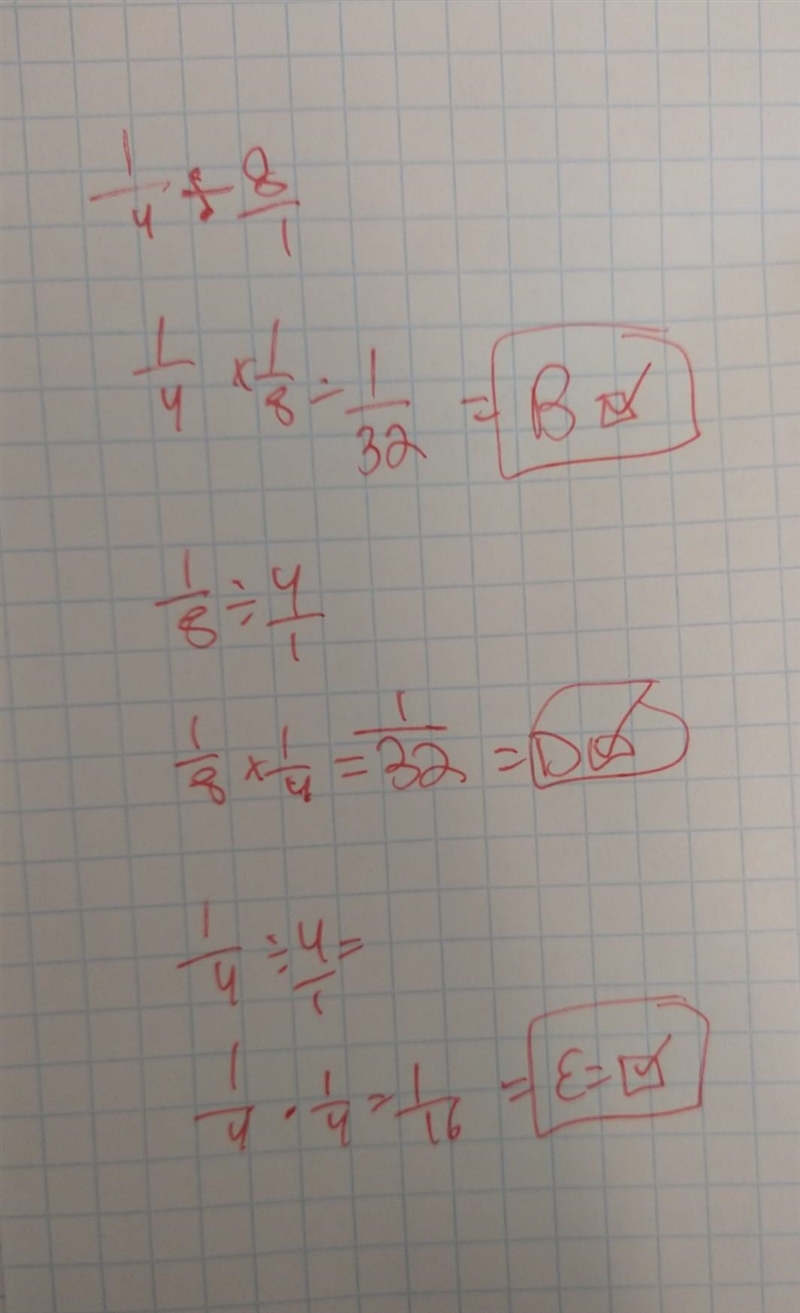 1/4 ÷ 8/1
1/4 × 1/8 = 1/32 = B ☑
1/8 ÷ 4/1
1/8 × 1/4 = 1/32 = D ☑
1/4 ÷ 4/1 =
1/4 · 1/4 = 1/16 = E = ☑